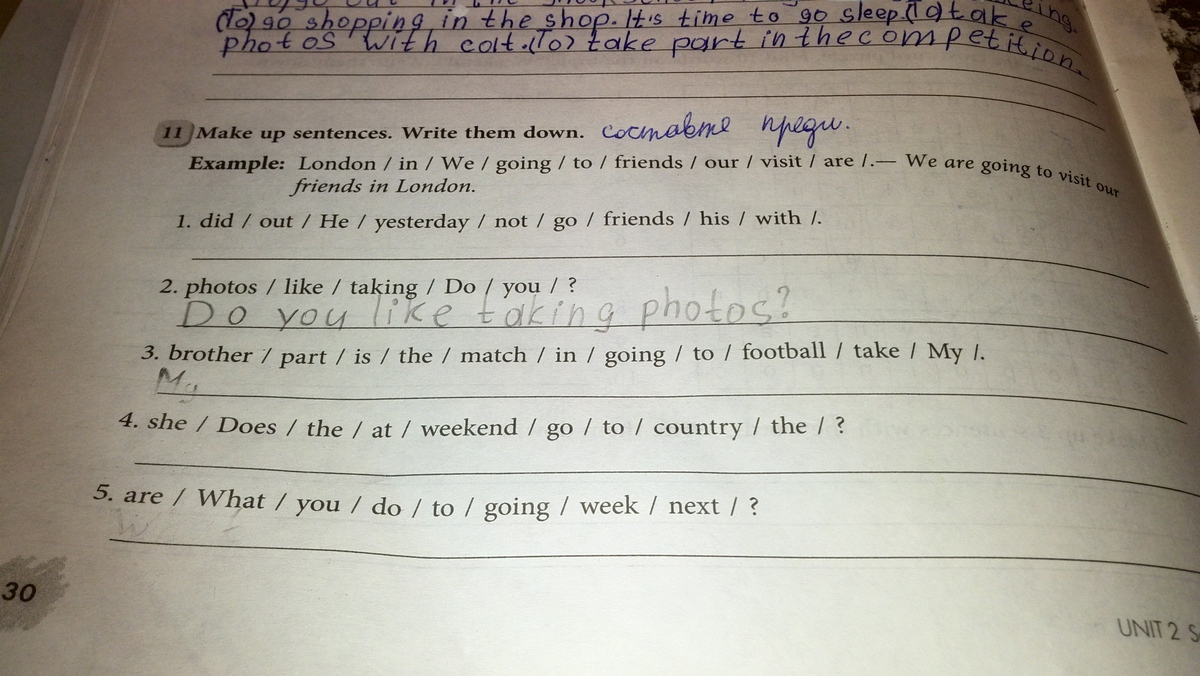 (To) go shopping in the shop. It's time to go sleep. (To) take
photos with colt. (To) take part in the competition.
11 Make up sentences. Write them down. составте предл.
Example: London / in / We / going / to / friends / our / visit / are /.— We are going to visit our
friends in London.
1. did / out / He / yesterday / not / go / friends / his / with /.
2. photos / like / taking / Do / you / ?
Do you like taking photos?
3. brother / part / is / the / match / in / going / to / football / take / My /.
My
4. she / Does / the / at / weekend / go / to / country / the / ?
5. are / What / you / do / to / going / week / next / ?
30
UNIT 2